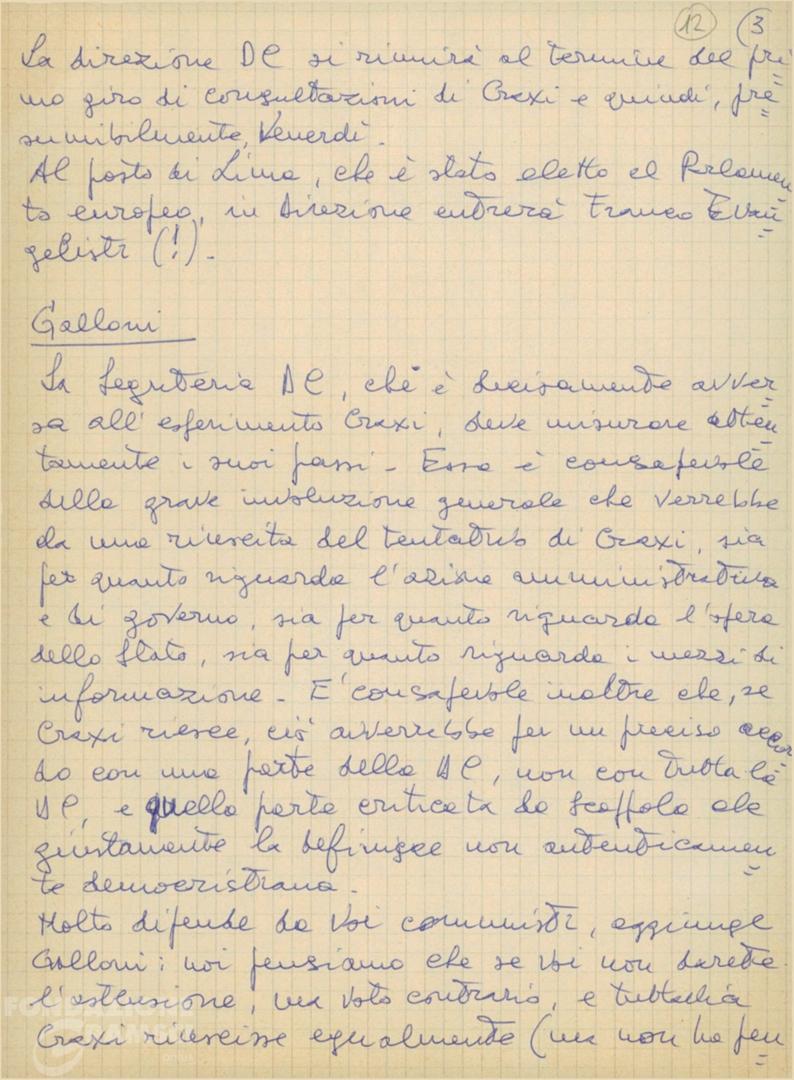 12 (3
La direzione DC si riunirà al termine del pri=
mo giro di consultazioni di Craxi e quindi, pre=
sumibilmente, Venerdì.
Al posto di Lima, che è stato eletto al Parlamen
to europeo, in direzione entrerà Franco Evan=
gelisti (!).
Galloni
La Segreteria DC, che è decisamente avver=
sa all'esperimento Craxi, deve misurare atten=
tamente i suoi passi - Essa è consapevole
della grave involuzione generale che verrebbe
da una riuscita del tentativo di Craxi, sia
per quanto riguarda l'azione amministrativa
e di governo, sia per quanto riguarda l'opera
dello Stato, sia per quanto riguarda i mezzi di
informazione - E' consapevole inoltre che, se
Craxi riesce, ciò avverrebbe per un preciso accor
do con una parte della DC, non con tutta la
DC, e quella parte criticata da Scoppola che
giustamente la definisce non autenticamen=
te democristiana.
Molto dipende da voi comunisti, aggiunge
Galloni: noi pensiamo che se voi non darete
l'astensione, ma voto contrario, e tuttavia
Craxi riuscisse egualmente (ma non ha pen=
FONDAZIONE
GRAMSCI